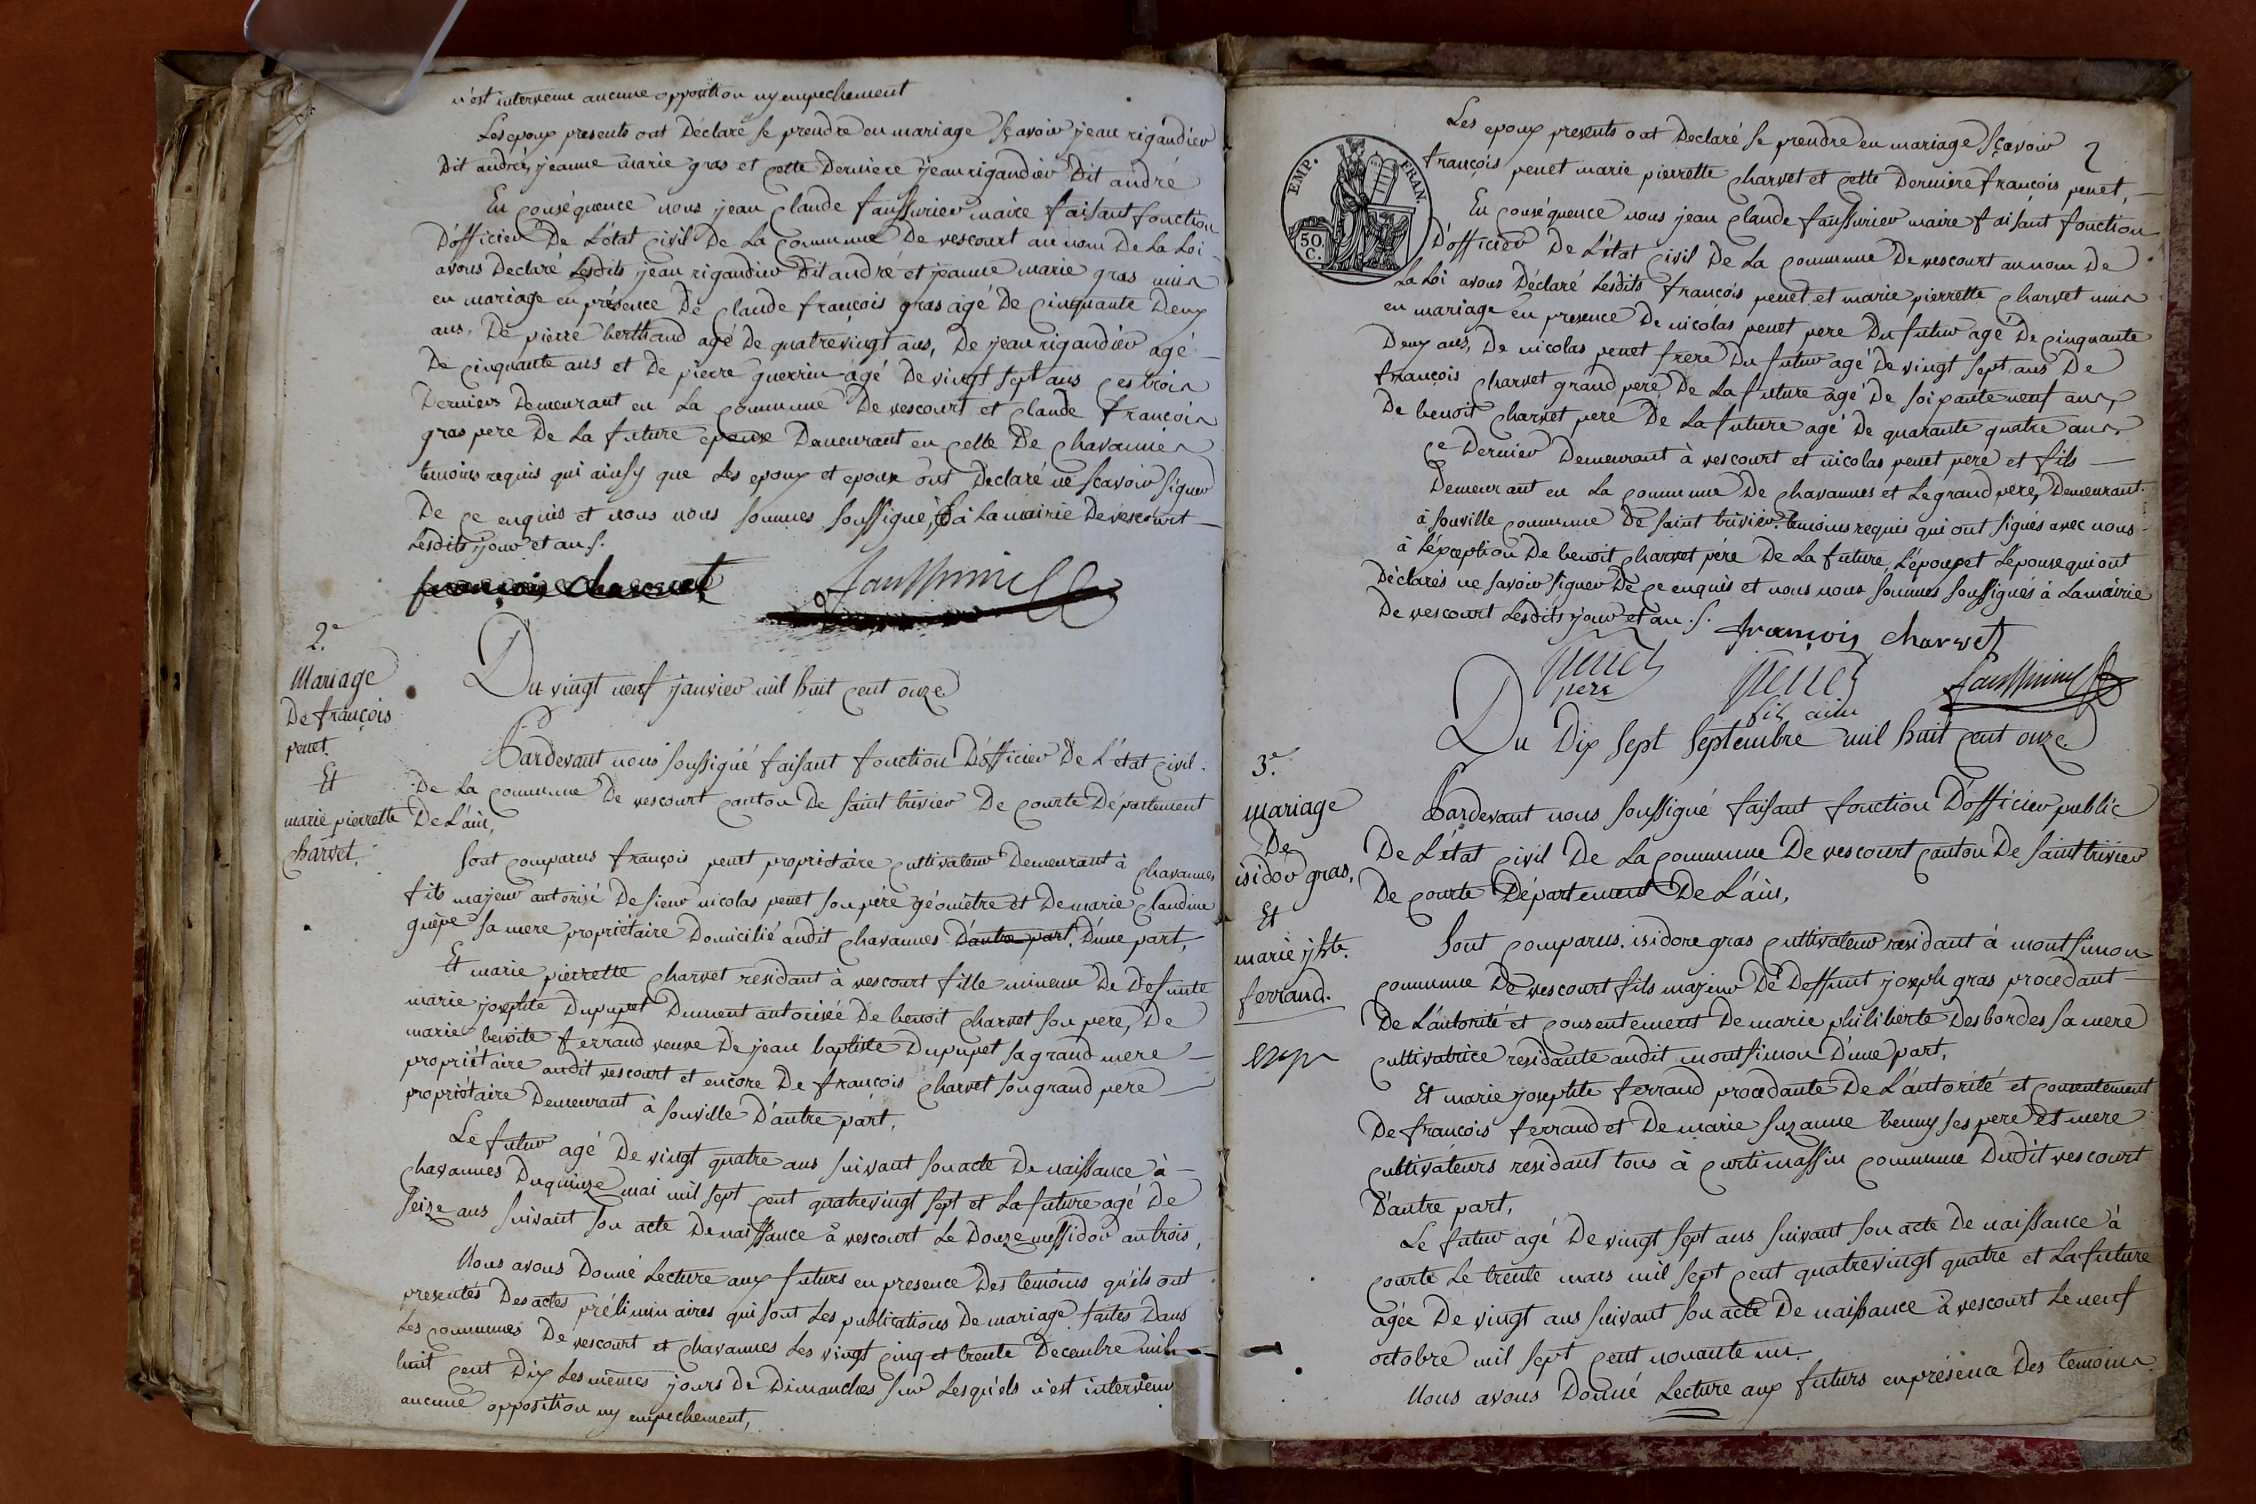 n'est intervenue aucune opposition ny empechement
Les epoux presents ont Déclaré se prendre en mariage sçavoir jean rigaudier
dit andré, jeanne marie gras et cette Derniere jean rigaudier Dit andré
En conséquence nous jean Claude faussurier maire faisant fonction
D'officier De L'état Civil De La Commune De vescourt au nom De La Loi
avons Declaré Lesdits jean rigaudier Dit andré et jeanne marie gras unis
en mariage en présence De Claude françois gras agé De Cinquante Deux
ans, De pierre berthaud agé De quatrevingt ans, De jean rigaudier agé
De Cinquante ans et De pierre guerrin agé De vingt sept ans Ces trois
Derniers Demeurant en La Commune De vescourt et Claude françois
gras pere De La future epouse Demeurant en Celle De Chavannes
temoins requis qui ainsy que Les epoux et epouse ont Declaré ne sçavoir signer
De Ce enquis et nous nous sommes soussigné, à La mairie De vescourt
Lesdits jour et an s.
françois charvet
2e
Mariage
De françois
penet.
Et
marie pierrette
Charvet.
Du vingt neuf janvier mil huit Cent onze
Pardevant nous soussigné faisant fonction D'officier De L'état Civil
De La Commune De vescourt Canton De Saint trivier De Courte Département
De L'ain,
Sont Comparus françois penet propriétaire Cultivateur Demeurant à Chavannes
fils majeur autorisé De sieur nicolas penet son père géomètre et De marie Claudine
guêpe sa mere propriétaire Domicilié audit Chavannes D'autre part. D'une part,
Et marie pierrette Charvet residant à vescourt fille mineure De Defunte
marie josephte Dupupet Dument autorisée De benoit Charvet son pere, De
marie benoite ferrand veuve De jean baptiste Dupupet sa grand mere
propriétaire audit vescourt et encore De françois Charvet son grand pere
propriétaire Demeurant à Souville D'autre part,
Le futur agé De vingt quatre ans suivant son acte De naissance à
Chavannes Du quinze mai mil sept Cent quatrevingt sept et La future agé De
seize ans suivant son acte De naissance à vescourt Le Douze messidor an trois,
Nous avons Donné Lecture aux futurs en presence Des temoins qu'ils ont
presentés Des actes préliminaires qui sont Les publications De mariage faites Dans
Les Communes De vescourt et Chavannes Les vingt Cinq et trente Decembre mil
huit Cent Dix Les mêmes jours De Dimanches sur Lesquels n'est intervenu
aucune opposition ny empechement,
EMP. FRAN.
50.
C.
2
Les epoux presents ont Declaré se prendre en mariage sçavoir
françois penet marie pierrette Charvet et Cette Derniere françois penet,
En Conséquence nous jean Claude faussurier maire faisant fonction
D'officier De L'état Civil De La Commune De vescourt au nom De
La Loi avons Déclaré Lesdits françois penet et marie pierrette Charvet unis
en mariage en presence De nicolas penet pere Du futur agé De Cinquante
Deux ans, De nicolas penet frere Du futur agé De vingt sept ans De
françois Charvet grand pere De La future agé De soixante neuf ans,
De benoit Charvet pere De La future agé De quarante quatre ans
Ce Dernier Demeurant à vescourt et nicolas penet pere et fils
Demeurant en La Commune De Chavannes et Le grand pere, Demeurant
à Souville Commune De Saint trivier. temoins requis qui ont signés avec nous
à L'exception De benoit Charvet père De La future L'époux et L'épouse qui ont
Déclarés ne savoir signer De Ce enquis et nous nous sommes soussignés à La mairie
De vescourt Lesdits jour et an. s.
françois charvet
penet
pere
penet
fils ainé
3e
Mariage
De
isidor gras,
Et
marie jste
ferrand.
Du Dix sept Septembre mil huit Cent onze
Pardevant nous soussigné faisant fonction D'officier public
De L'état Civil De La Commune De vescourt Canton De Saint trivier
De Courte Département De L'ain,
Sont Comparus. isidore gras Cultivateur residant à montsimon
Commune De vescourt fils majeur De Deffunt joseph gras procedant
De L'autorité et Consentement De marie philiberte Desbordes sa mere
Cultivatrice residante audit montsimon D'une part,
Et marie josephte ferrand procedante De L'autorité et Consentement
De françois ferrand et De marie suzanne benny ses pere et mere
Cultivateurs residant tous à Curtimassin Commune Dudit vescourt
D'autre part,
Le futur agé De vingt sept ans suivant son acte De naissance à
Courte Le trente mars mil sept Cent quatrevingt quatre et La future
agée De vingt ans suivant son acte De naissance à vescourt Le neuf
octobre mil sept Cent nonante un.
Nous avons Donné Lecture aux futurs en présence Des temoins